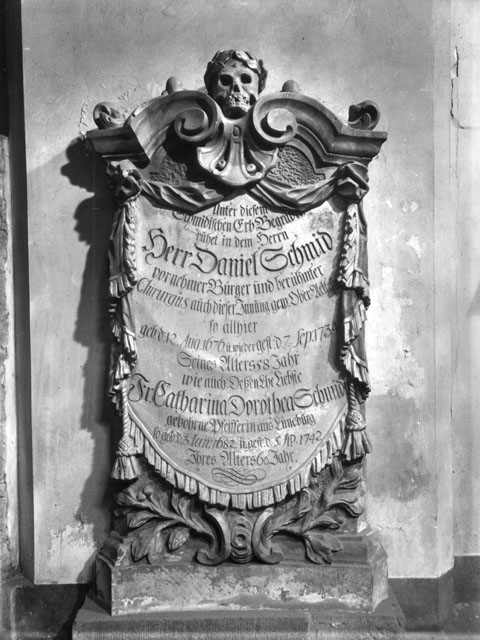 Unter diesem
Schmidischen Erb Begräbn
ruhet in dem Herrn
Herr Daniel Schmid
vornehmer Bürger und berühmter
Chirurgus auch dieser Innung gew. Ober Aelt
so allhier
geb. d. 12. Aug. 1676 u. wieder gest. d. 7. Sep. 1734
Seines Alters 58 Jahr
wie auch Deßen Ehe Liebste
Fr. Catharina Dorothea Schmid
gebohrne Pfeifferin aus Lüneburg
so geb. d. 3. Jan. 1682 u. gest. d. 5. Ap. 1742
Ihres Alters 60 Jahr.